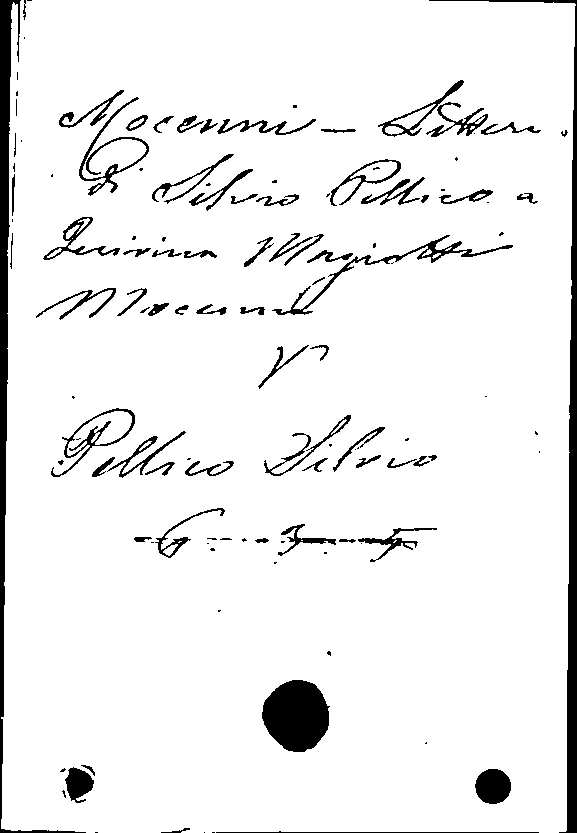 Mocenni – Lettere
di Silvio Pellico a
Quirina Magiotti
Mocenni
V
Pellico Silvio
6 3 5